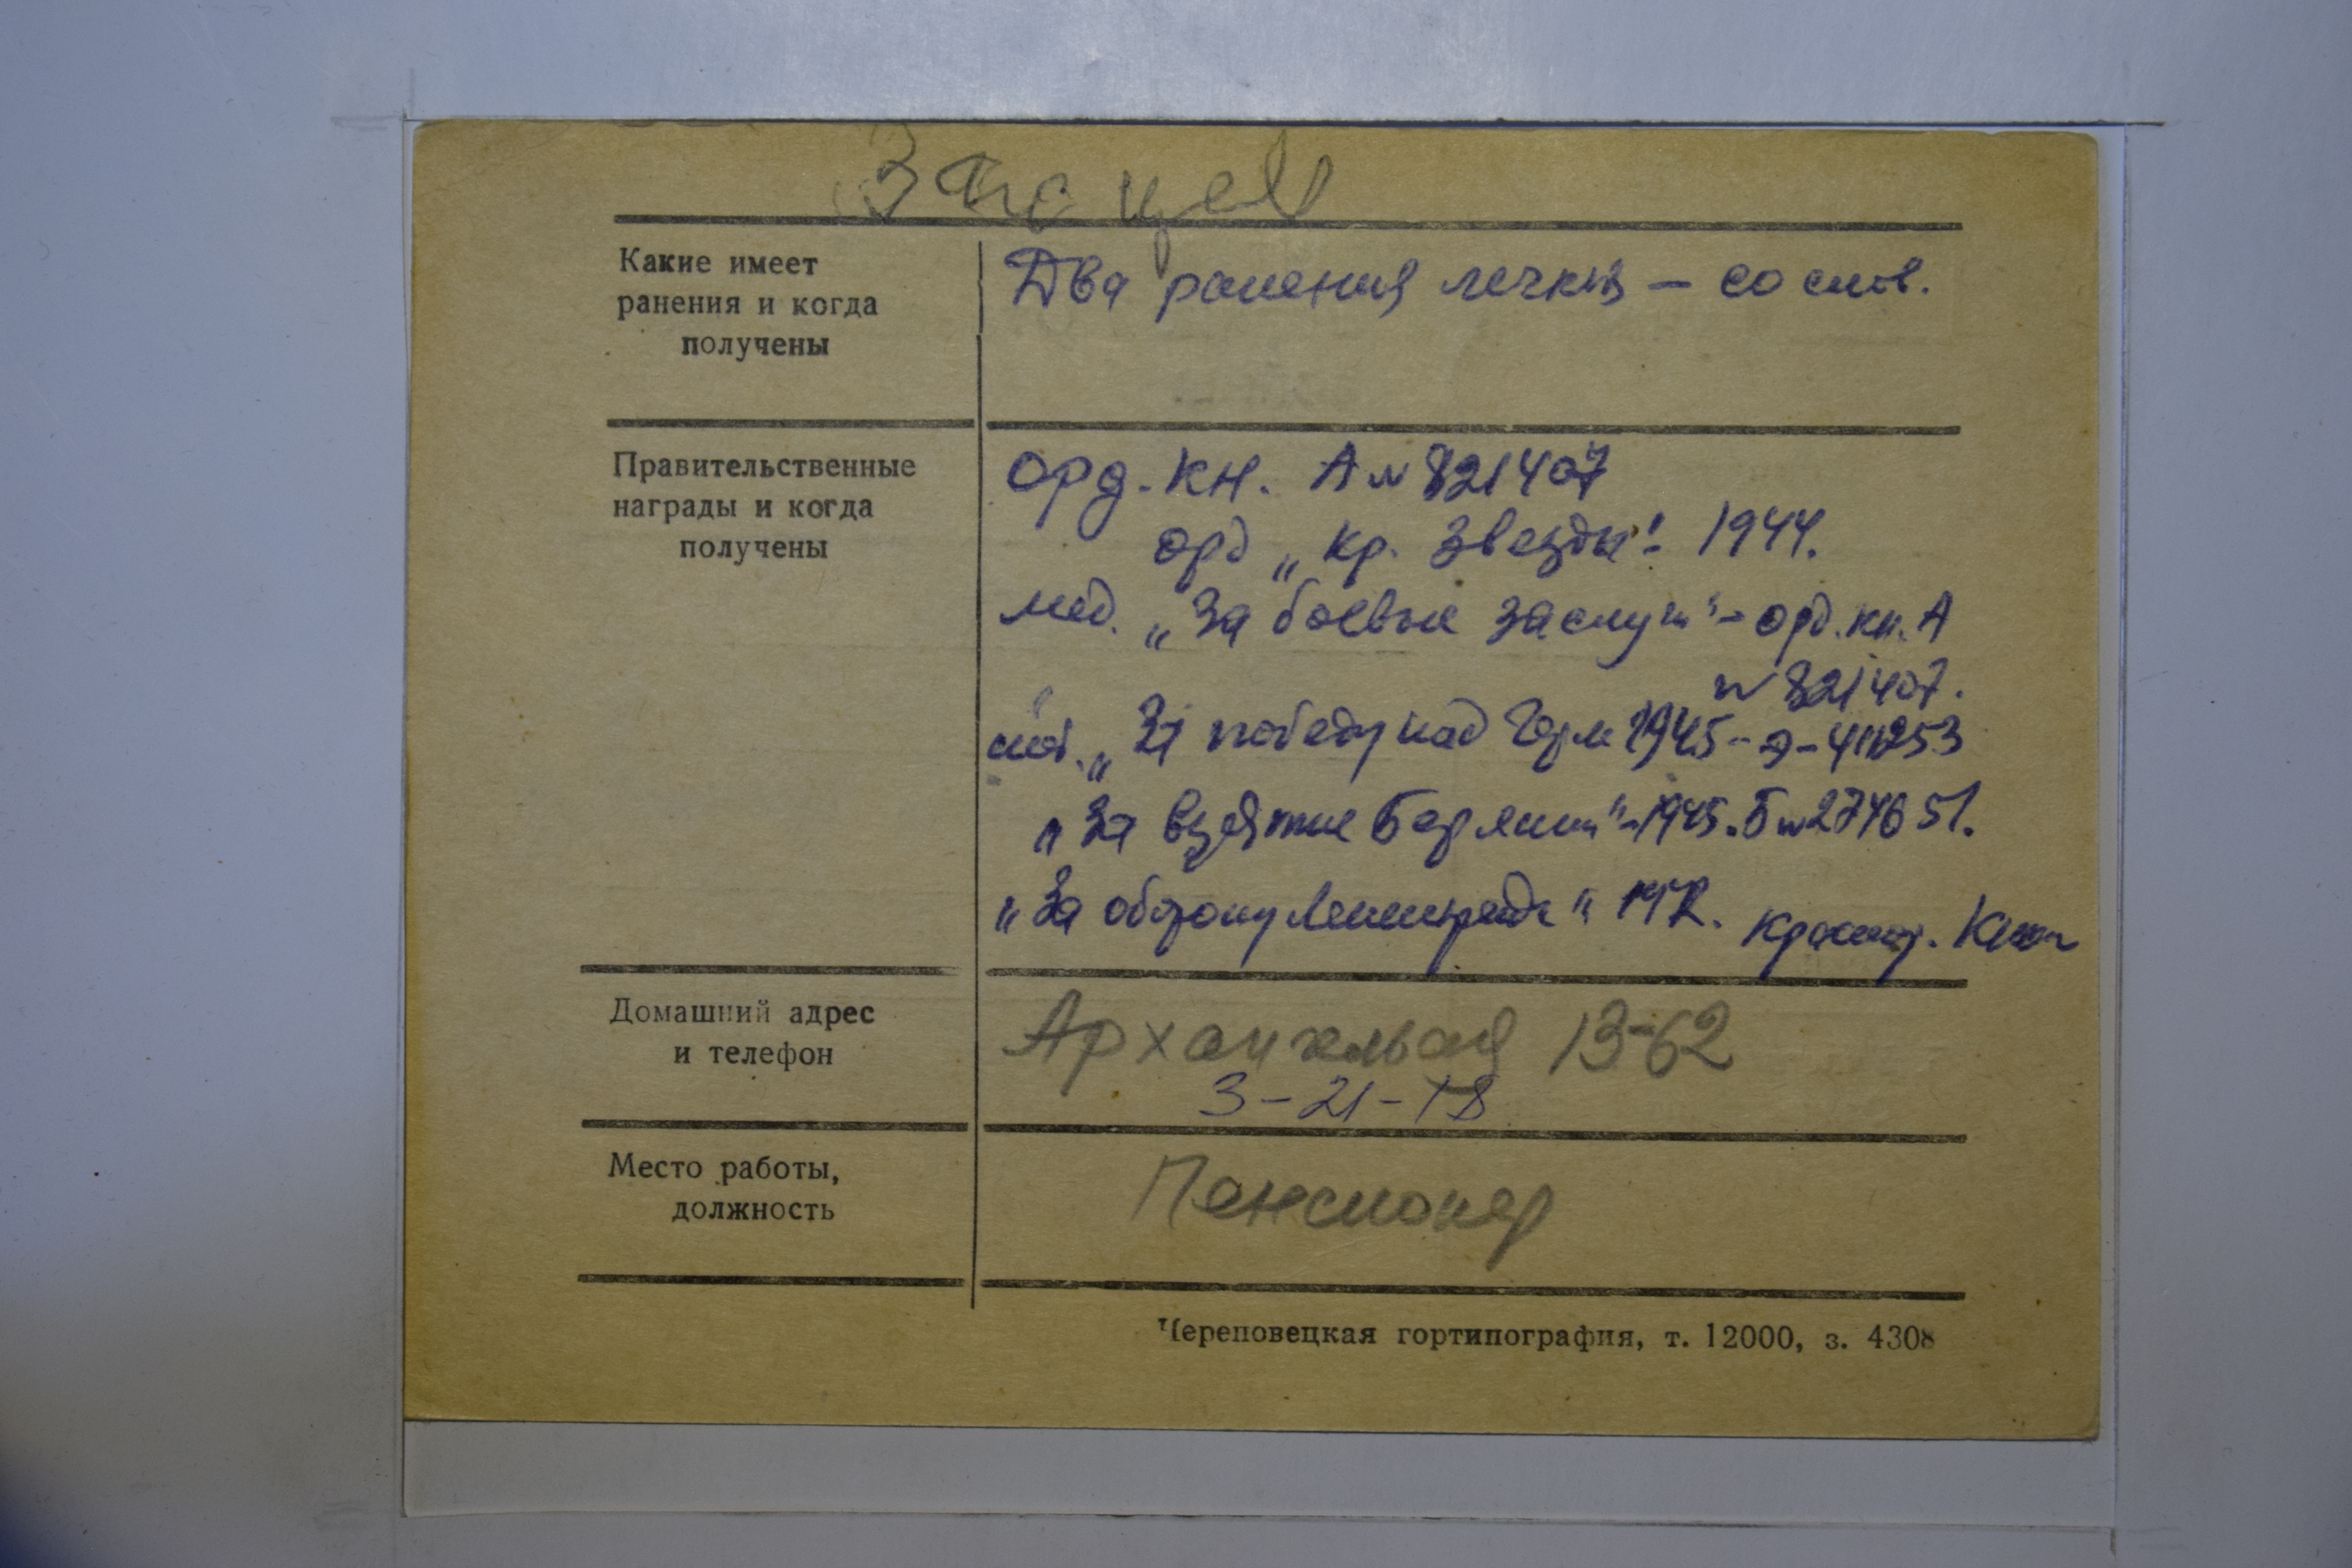 Какие имеет
ранения и когда
получены
Два ранения легких – со слов.
Правительственные
награды и когда
получены
орд. кн. А № 821407
орд „Кр. Звезды" - 1944.
мед. „За боевые заслуги" - орд. кн. А
№ 821407.
„За победу над Герм 1945 - Э -
„За взятие Берлина" - 1945. Б № 274651.
„За оборону Ленинграда"
Домашний адрес
и телефон
Архангельская 13-62
3-21-18
Место работы,
должность
Пенсионер
Череповецкая гортипография, т. 12000, з. 4308